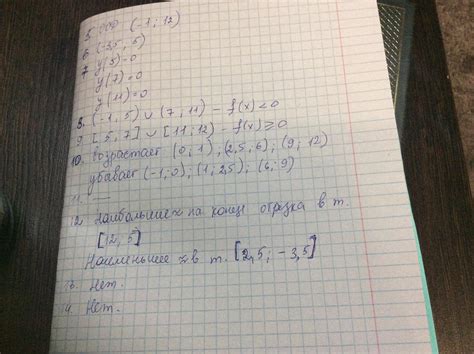 5. ООО (-1; 12)
6. (-3,5; 5)
7. y(5)=0
y(7)=0
y(11)=0
8. (-1, 5) ∪ (7, 11) - f(x)<0
9. [5, 7] ∪ [11; 12) - f(x)≥0
10. Возрастает (0; 1), (2,5, 6); (9; 12)
убывает (-1; 0); (1; 2,5); (6; 9)
11. —
12. Наибольшее на конце отрезка в т.
[12; 5]
Наименьшее в т. [2,5; -3,5]
13. Нет.
14. Нет.